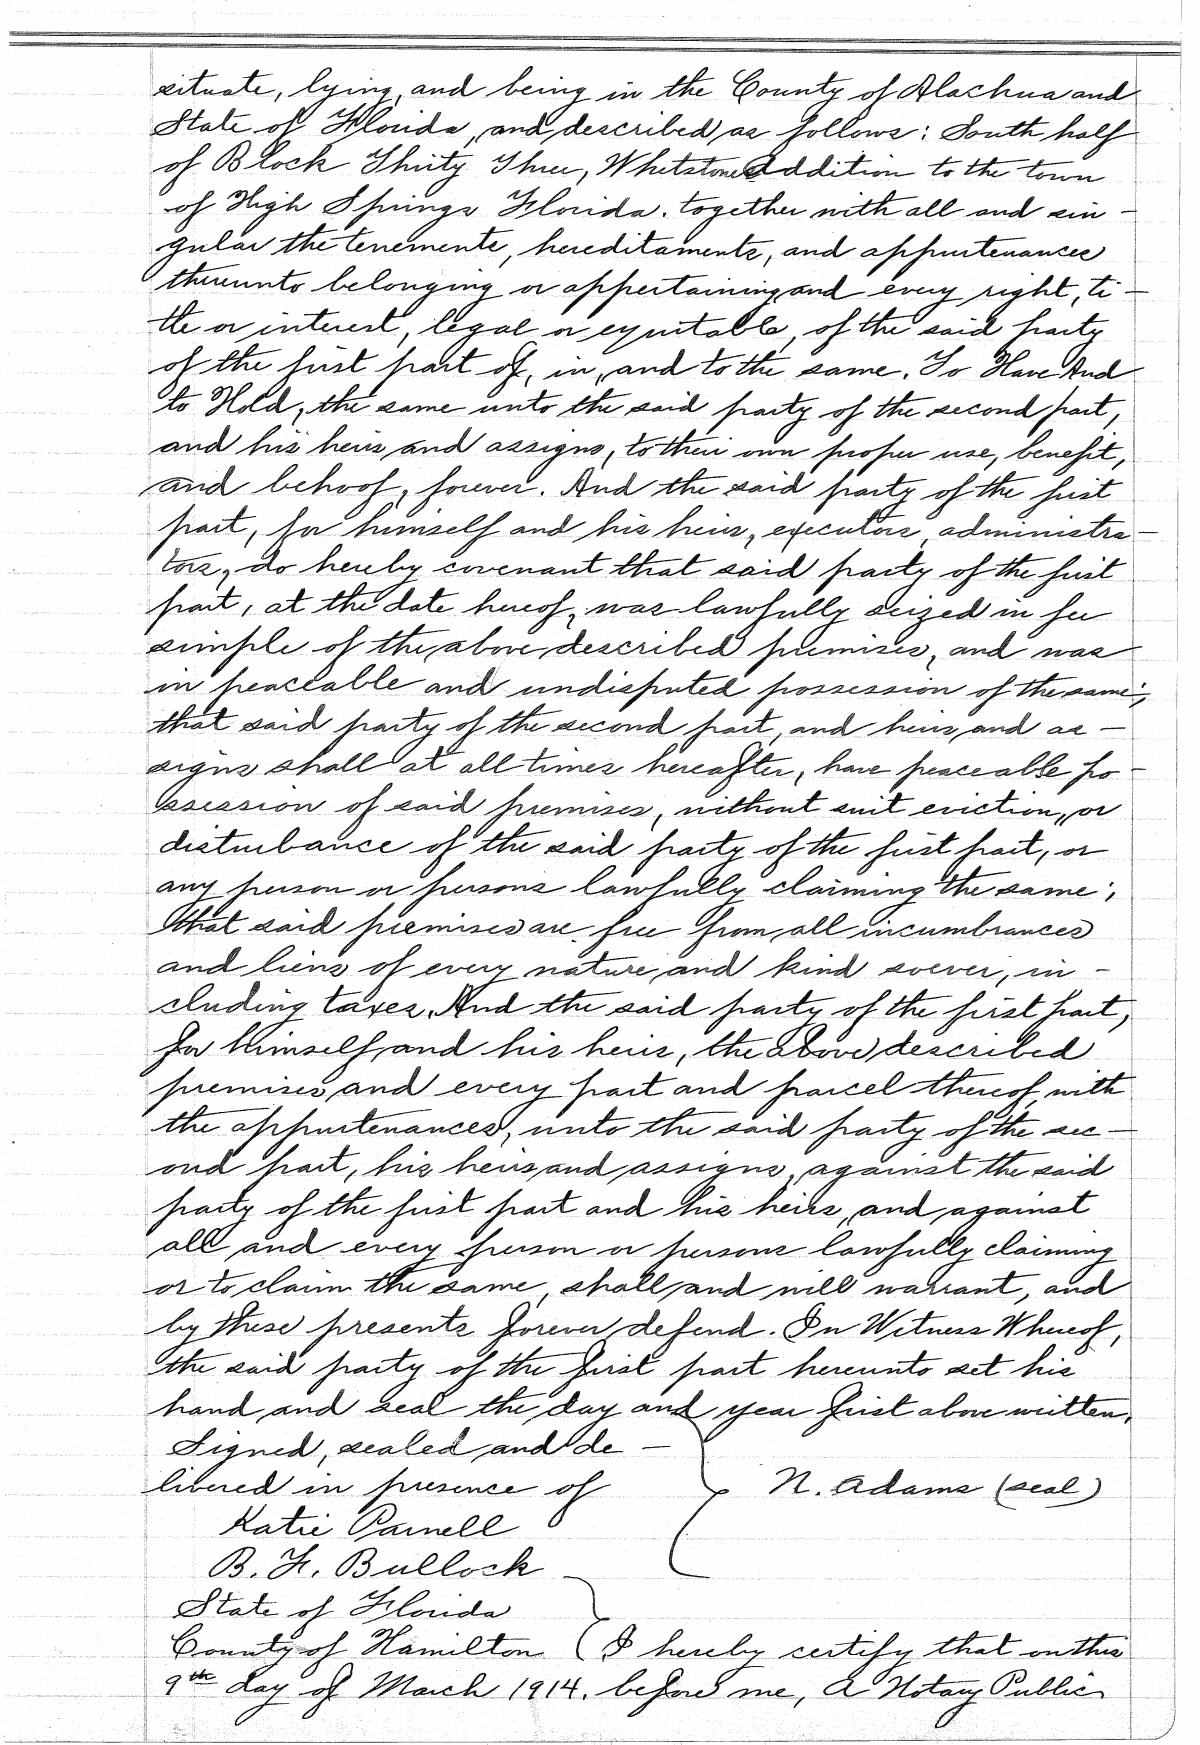 situate, lying, and being in the County of Alachua and
State of Florida, and, described, as follows: South half
of Block Thirty Three, Whetstones Addition to the town
of High Springs Florida. together with all and sin-
gular the tenements, hereditaments, and appurtenances
thereunto belonging or appertaining, and every right, ti-
tle or interest, legal or equitable, of the said party
of the first part of, in, and to the same. To Have And
to Hold, the same unto the said party of the second part,
and his heirs, and assigns, to their own proper use, benefit,
and behoof, forever. And the said party of the first
part, for himself and his heirs, executors, administra-
tors, do hereby covenant that said party of the first
part, at the date hereof, was lawfully seized in fee
simple of the, above, described premises, and was
in peaceable and undisputed possession of the same;
that said party of the second part, and heirs, and as-
signs shall at all times hereafter, have peaceable po-
ssession of said premises, without suit eviction, or
disturbance of the said party of the first part, or
any person or persons lawfully claiming the same;
that said premises are free from, all incumbrances
and liens of every nature, and kind soever, in-
cluding taxes. And the said party of the first part,
for himself, and his heirs, the above, described
premises, and every part and parcel thereof, with
the appurtenances, unto the said party of the sec-
ond part, his heirs, and, assigns, against the said
party of the first part and his heirs, and, against
all and every person or persons lawfully claiming
or to claim the same, shall, and will warrant, and
by these presents forever, defend. In Witness Whereof,
the said party of the first part hereunto set his
hand, and seal the, day and year first above written.
Signed, sealed, and de-
livered in presence of N. Adams (seal)
Katie Parnell
B. F. Bullock
State of Florida
County of Hamilton I hereby certify that on this
9th day of March 1914. before me, a Notary Public